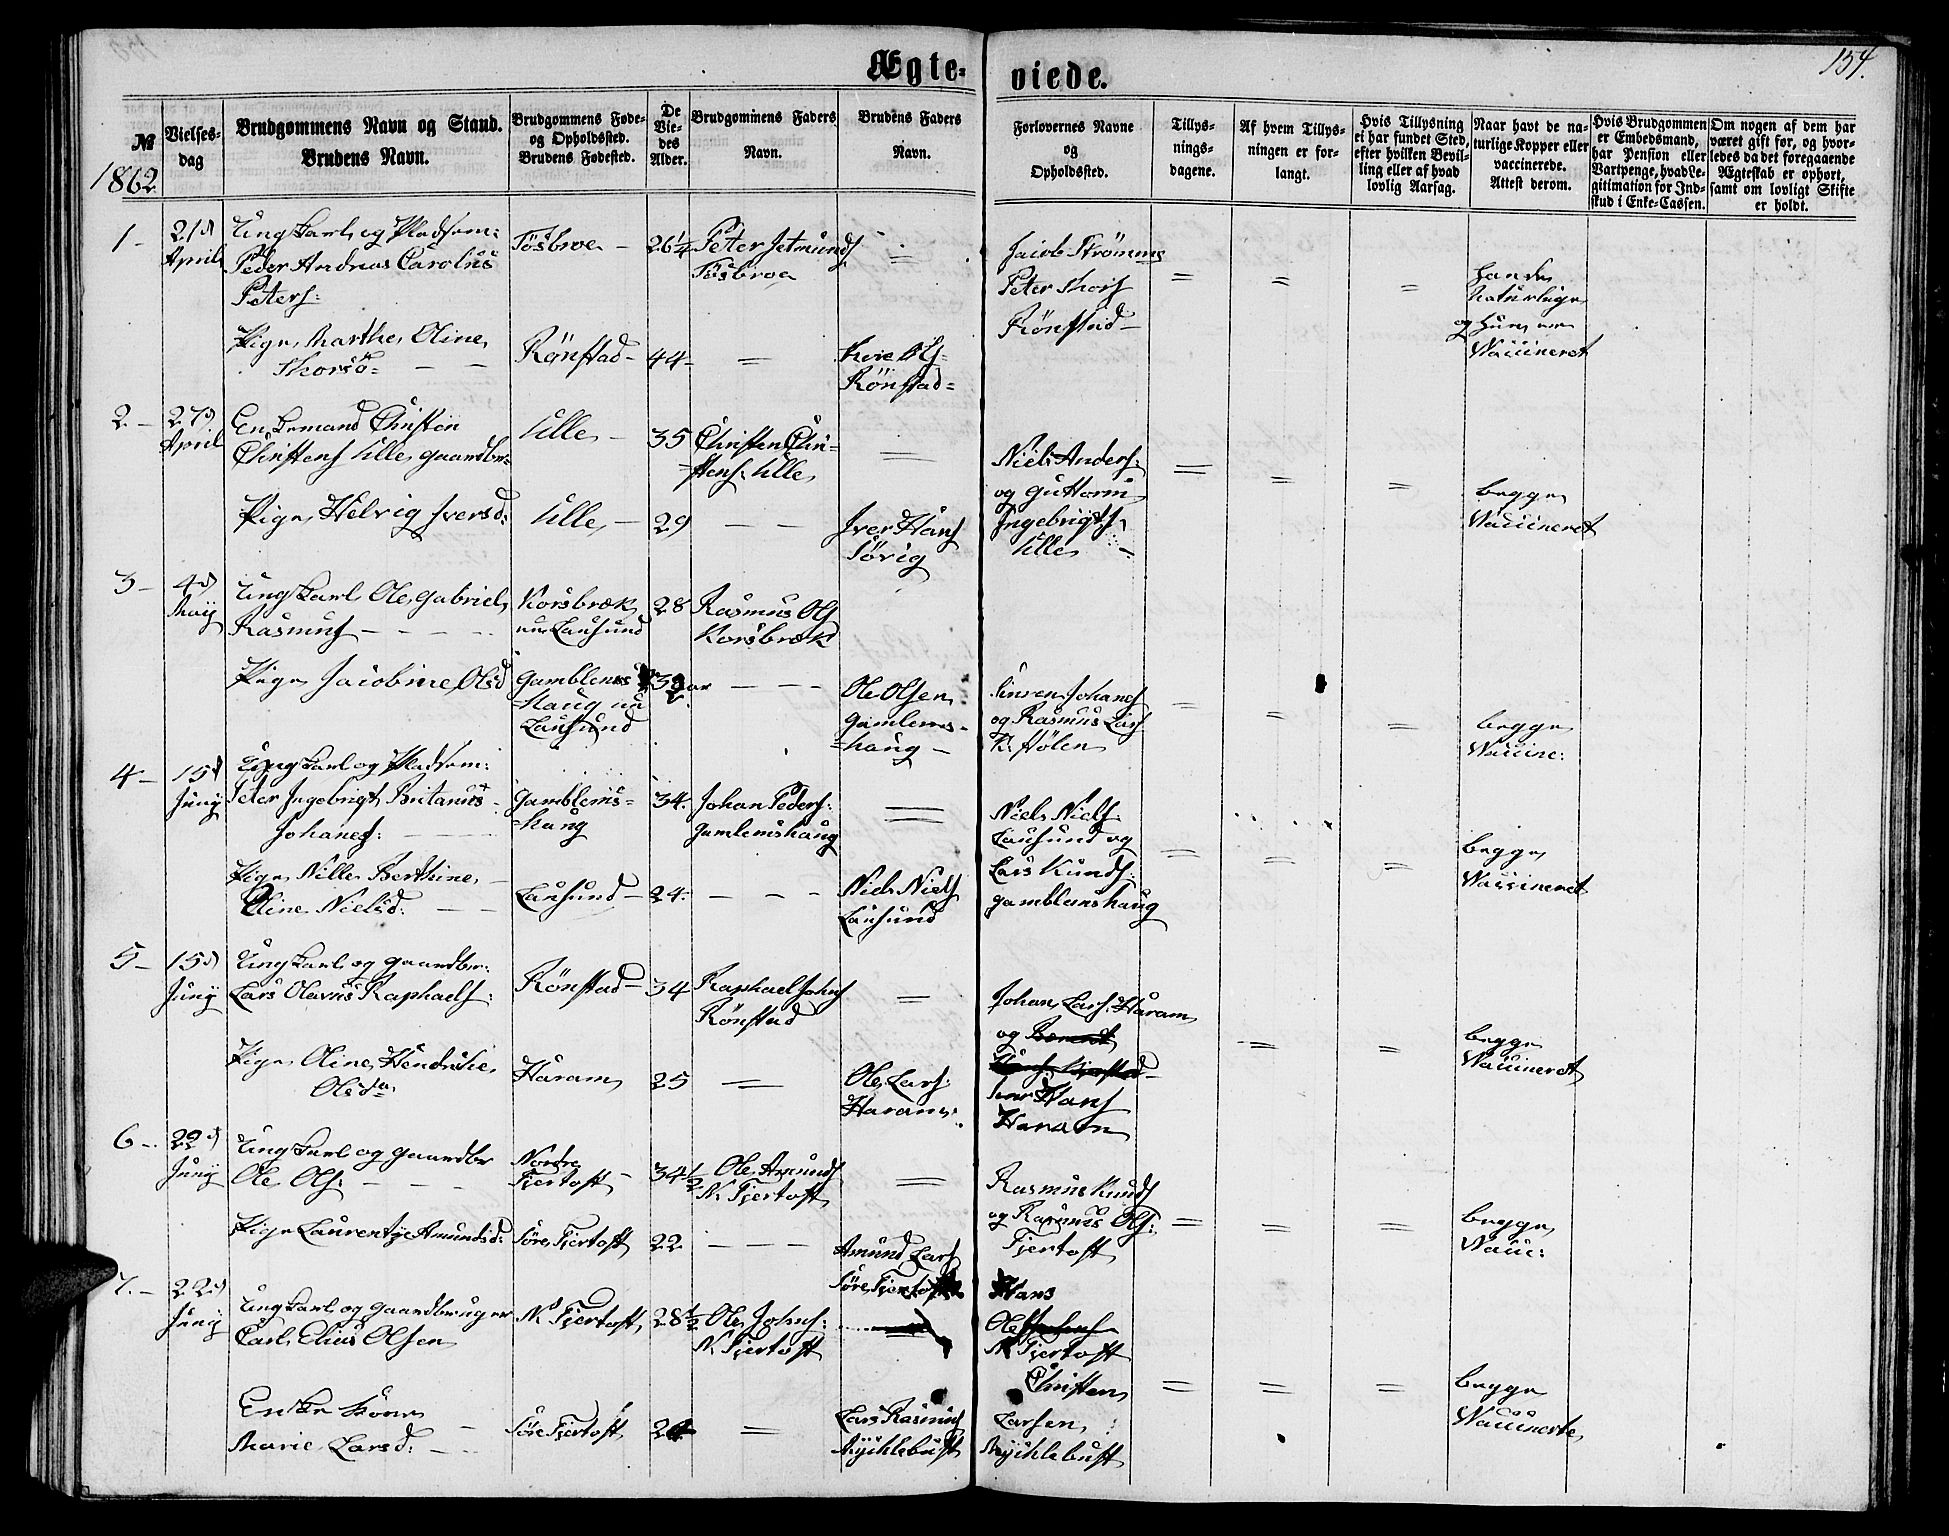 154.
Ægte-
viede.
№
Vielses-
dag
Brudgommens Navn og Stand.
Brudens Navn.
Brudgommens Føde-
og Opholdssted.
Brudens Fødested.
De
Vie-
des
Alder.
Brudgommens Faders
Navn.
Brudens Faders
Navn.
Forlovernes Navne
og
Opholdssted.
Tillys-
nings-
dagene.
Af hvem Tillys-
ningen er for-
langt.
Hvis Tillysning
ei har fundet Sted,
efter hvilken Bevil-
ling eller af hvad
lovlig Aarsag.
Naar havt de na-
turlige Kopper eller
vaccinerede.
Attest derom.
Hvis Brudgommen
er Embedsmand,
har Pension eller
Vartpenge, hvad Le-
gitimation for Ind-
skud i Enke-Cassen.
Om nogen af dem har
været gift før, og hvor-
ledes da det foregaaende
Ægteskab er ophørt,
samt om lovligt Skifte
er holdt.
1862
1 -
21d
April
Ungkarl og Pladsem:
Peder Andreas Carolus
Peters:
Fösbroe -
26 1/4
Peter Jetmunds
Fösbroe
=
Jacob Strömme
Peter Thors
Rönstad -
=
=
=
Naturlige
og hun
Waccineret
Pige Marthe Oline
Thorsd = - -
Rönstad -
44 -
=
Rönstad =
2 -
27d
April
Enkemand Christen
Christens Ulle gaardbr =
Ulle -
35
Christen Chri-
stens: Ulle
=
Niels Anders:
og Guttorm
Ingebrigts
Ulle -
=
=
=
begge
Waccineret
Pige Helvig Iversd:
Ulle -
29
- -
Iver Hans
Sövig
3 -
4d
Maij
Ungkarl Ole Gabriel
Rasmus - - -
Korsbræk
nu Lausund
28
Rasmus Ols
Korsbræk
Pige Jacobine Olsd
Gamblems
-haug nu
Lausund
- - -
Ole Olsen
Gamlems -
-haug -
Johans
og Rasmus Lars
=
=
=
begge
Waccine:
4 -
15d
Junij
Ungkarl og Pladsem:
Peter Ingebrigt Britanus
Johanes: - - -
Gamblems-
haug
34.
Johan Peders:
Gamlemshaug
=
Niels Niels
Lausund og
Lars Knuds:
Gamblemshaug
=
=
=
begge
Waccineret
Pige Nille Berthine -
Oline Nielsd: - -
Lausund -
24.
- - -
Niels Niels
Lausund
5 -
15d
Junij
Ungkarl og gaardbr:
Lars Olavus Raphaels:
Rönstad -
34
Raphael Johns
Rönstad
=
Johan Lars: Haram
og
Hans
Haram
=
=
begge
Waccineret
Pige Oline Hendrikke
Olsda
Haram
25
=
Ole Lars:
Haram:
6 -
22d
Junij
Ungkarl og gaardbr
Ole Ols: - - -
Nordre
Fjertoft -
34 1/2
Ole Amunds
N. Fjertoft
=
Rasmus Knuds
og Rasmus Ols:
Fjertoft
=
=
=
begge
Wacc:
Pige Laurentze Amundsd:
Söre Fjertoft
22
- - -
Amund Lars
Söre Fjertoft
7. -
22d
Junij
Ungkarl og gaardbruger
Carl Elius Olsen
N. Fjertoft
28 1/2
Ole Johns:
N. Fjertoft
Hans
Ole
N. Fjertoft
Christen
Larsen
Myklebust
=
=
=
begge
Waccinerte
Enke
Marie Larsd: -
Söre Fjertoft
=
Lars Rasmus
Myklebust